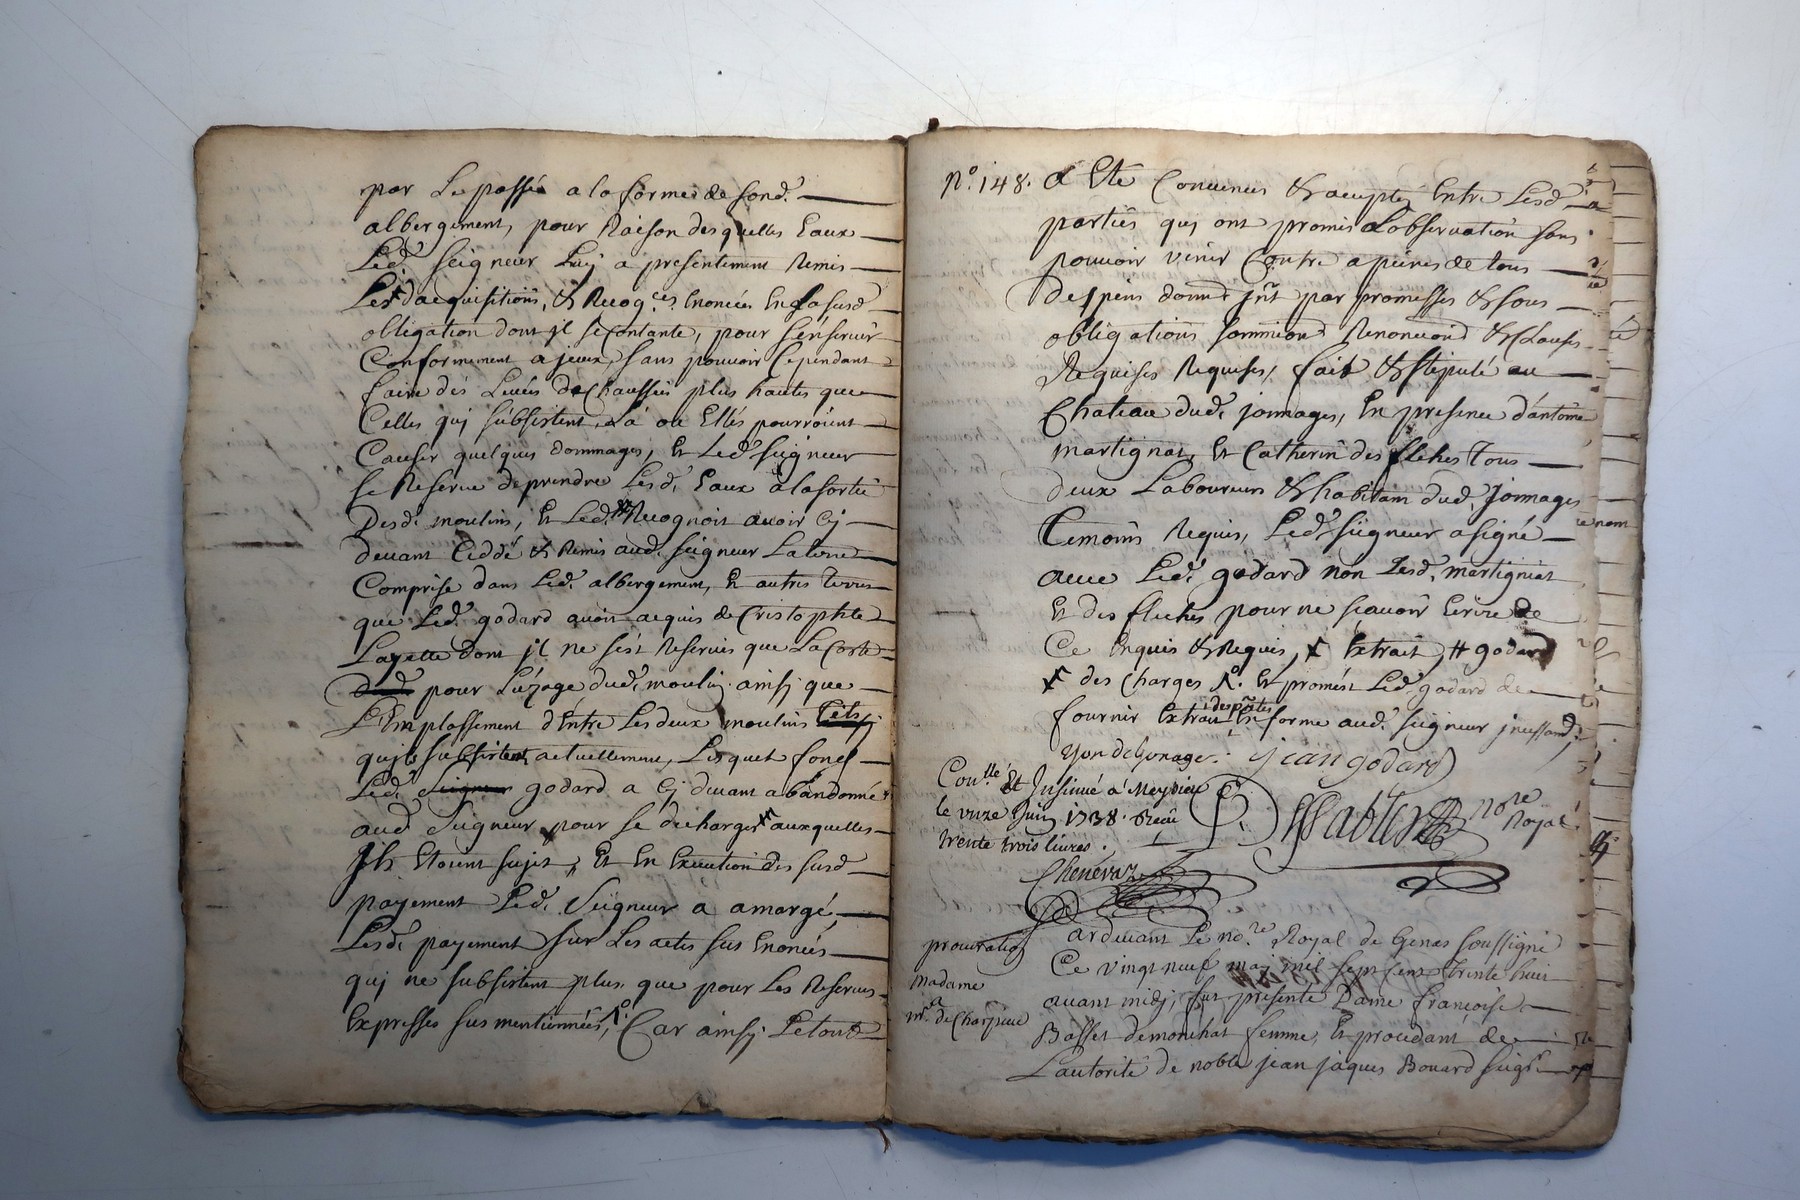 par Le passé a la forme de sond.
albergement, pour Raison desquelles Eaux
Led. seigneur Luy a presentement Remis
Les d'acquisitions, & Recog.ces Enoncées En sa susd.
obligation dont jl se contante, pour s'en servir
Conformement a jceux, sans pouvoir Cependant
faire des Levées de Chaussées plus hautes que
Celles quj subsistent, La ou Elles pourroient
Causer quelques dommages, Et Led. seigneur
se Reserve de prendre Lesd. Eaux a la sortie
Desd. moulins, Et Led. Recognoit avoir Cy
devant Ceddé & Remis aud. seigneur La terre
Comprise dans Led. albergement, Et autres terres
que Led. godard avoit acquis de Cristophle
Layette dont jl ne s'est Reservés que La
pour L'uzage dud. moulin ainsj que
L'Emplassement d'Entre Les deux moulins
subsistent actuellement, Lesquels fonds
Led. godard a Cy devant abandonné
aud. Seigneur pour se decharger auxquelles
jls Etoient sujet, Et En Execution des susd.
payement Led. Seigneur a amargé
Lesd. payement sur Les actes sus Enoncés
quj ne subsistent plus que pour Les Reserves
Expresses sus mentionnées, Car ainsj Le tout
N.o 148. a Eté Convenus & accepté Entre Lesd.
parties quj ont promis L'observation sans
pouvoir venir Contre a peines de tous
despens domm. jnt. par promesses & sous
obligations soummions Renonciond & Clauses
Requises Requises, fait & stipulé au
Chateau dud. jonnages, En presence d'antoine
martignat, Et Catherin des fleches Tous
deux Laboureurs & habitant dud. Jonnages
Temoins Requis, Led. seigneur a signé
avec Led. godard non Lesd. martigniat
Et des fleches pour ne sçavoir Ecrire de
Ce Enquis & Requis, Extrait, godard
des Charges Et promest Led. godard de
des pntes
fournir Extrait En forme aud. seigneur
yon de Jonage. jean godard
Con.llé Et Insinué à Meyzieu
le onze Juin 1738. Reçu
trente trois livres.
Chenevaz
Sablier no.re Royal
procuration
Madame
a
mr. de
ardevant Le no.re Royal de Genas soussigné
Ce vingt neuf maj mil sept cens Trente huit
avant midj, fut presente Dame françoise
Basset de femme, Et procedant de
L'autorité de noble jean jaques Bouard seig.r